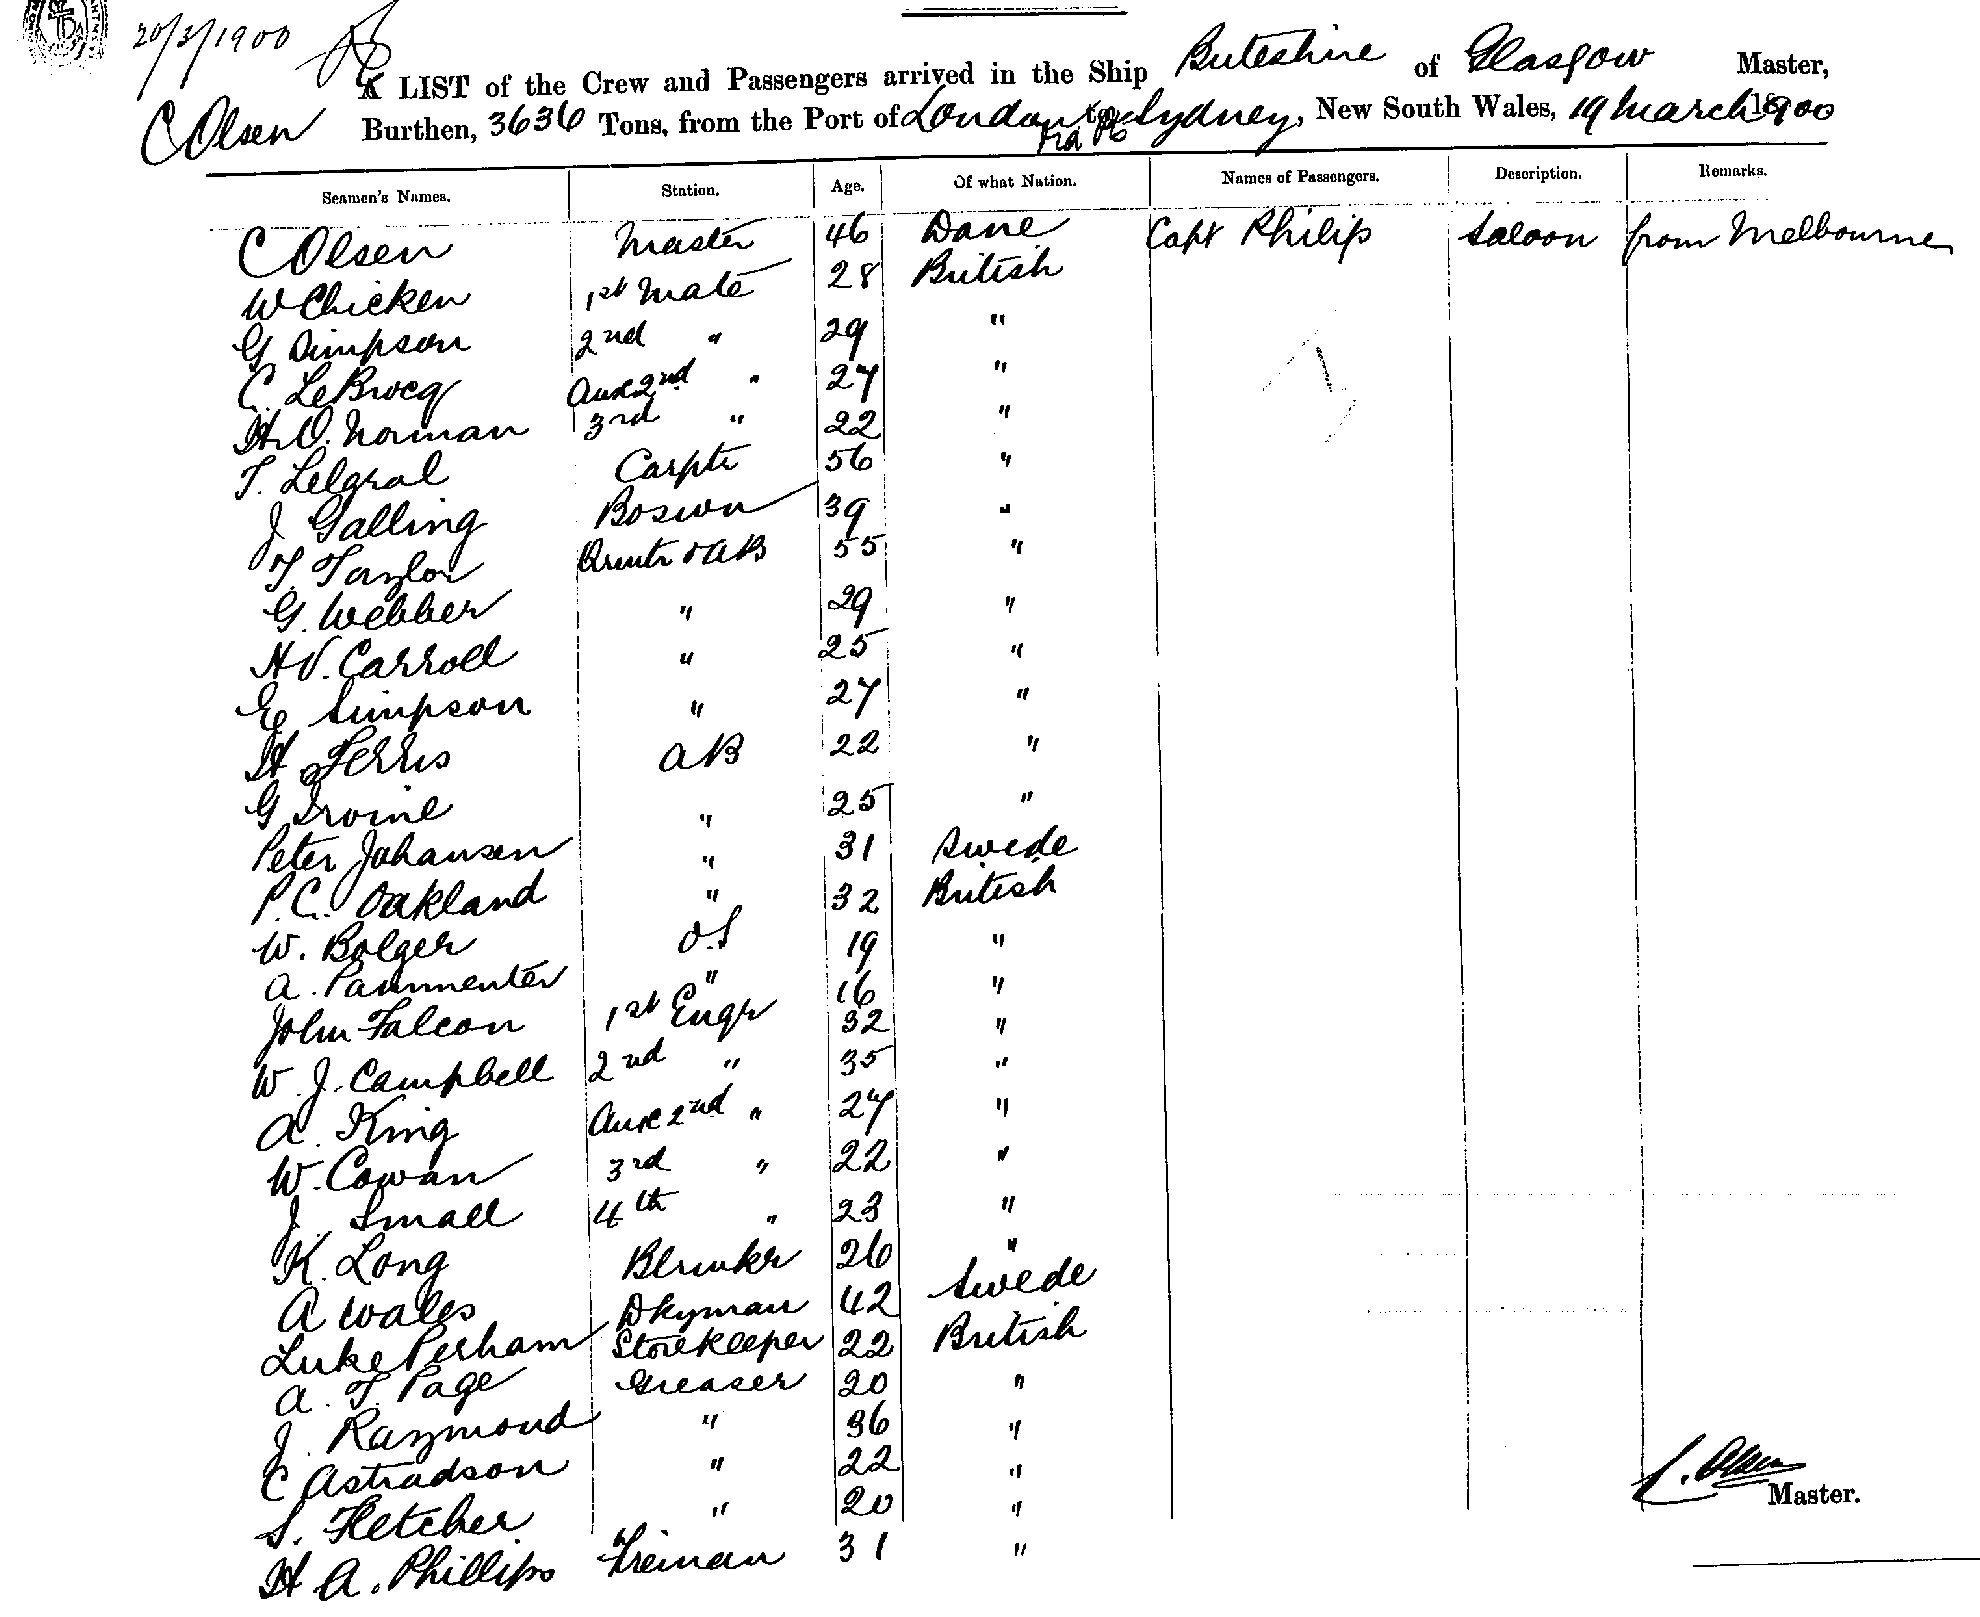 20/3/1900
A LIST of the Crew and Passengers arrived in the Ship Buteshire of Glasgow Master,
C Olsen Burthen, 3636 Tons, from the Port of London to Sydney, New South Wales, 19 March 1900
via
Seamen's Names. Station. Age. Of what Nation. Names of Passengers. Description. Remarks.
C Olsen Master 46 Dane Capt Philip Saloon from Melbourne
W Chicken 1st Mate 28 British
G Simpson 2nd " 29 "
C. LeBrocq Aux 2nd " 27 "
H. O. Norman 3rd " 22 "
T. Lelgral Carptr 56 "
J Galling Boswn 39 "
T. Taylor 55 "
G. Webber " 29 "
H V. Carroll " 25 "
E Simpson " 27 "
H Ferris AB 22 "
G Irvine " 25 "
Peter Johansen " 31 Swede
P. C. Oakland " 32 British
W. Bolger O.S 19 "
A. Parmenter " 16 "
John Falcon 1st Engr 32 "
W. J. Campbell 2nd " 35 "
A. King Aux 2nd " 27 "
W. Cowan 3rd " 22 "
J. Small 4th " 23 "
K. Long 26 "
A Wales Dkyman 42 Swede
Luke Perham Storekeeper 22 British
A. T. Page Greaser 20 "
J. Raymond " 36 "
C Astradson " 22 "
S. Fletcher " 20 "
H A. Phillips Fireman 31 "
C. Olsen
Master.